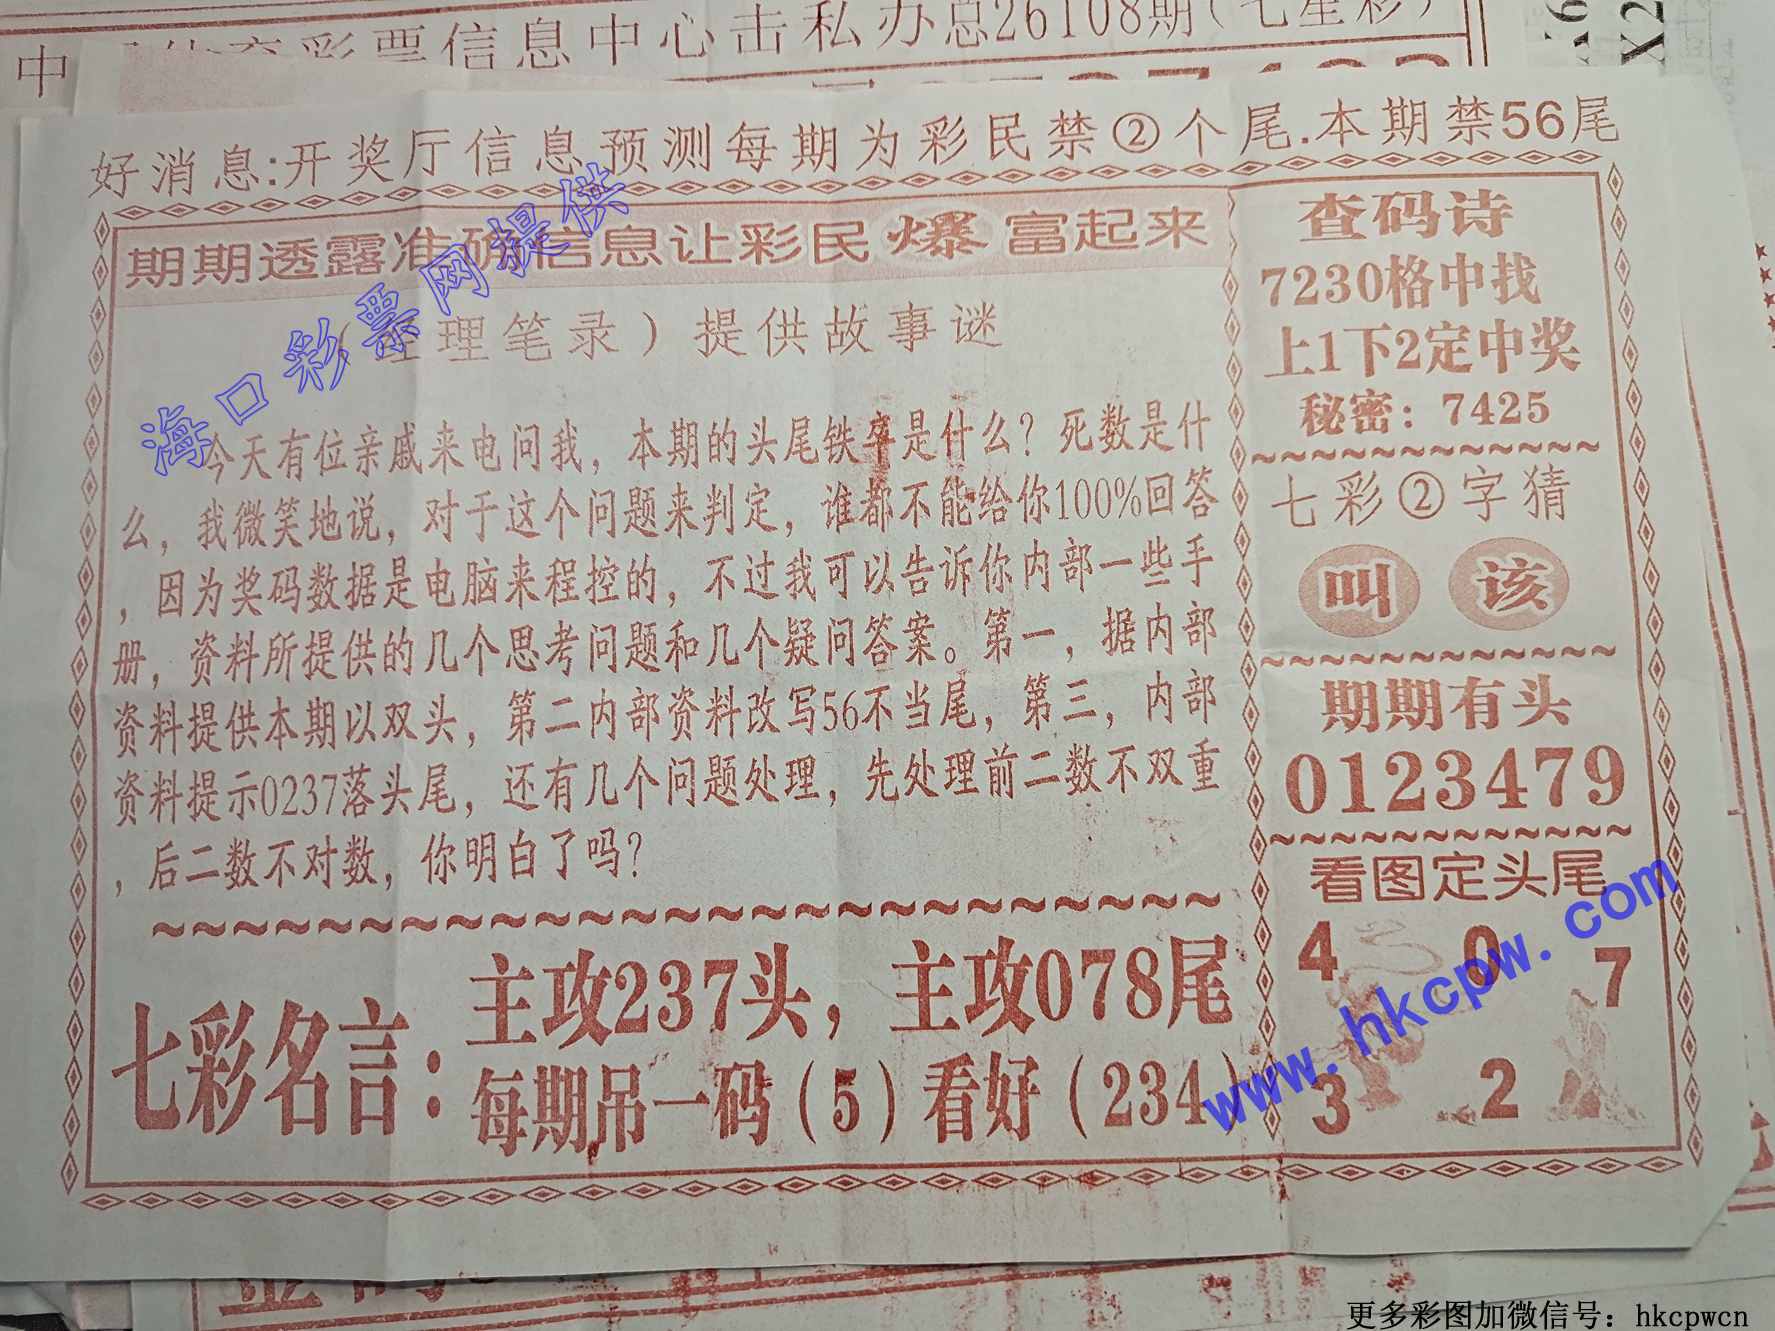 彩票信息中心击私办总26108期(七星彩)
好消息:开奖厅信息预测每期为彩民禁②个尾.本期禁56尾
期期透露准确信息让彩民爆富起来
理笔录)提供故事谜
今天有位亲戚来电问我,本期的头尾铁卒是什么?死数是什
么,我微笑地说,对于这个问题来判定,谁都不能给你100%回答
,因为奖码数据是电脑来程控的,不过我可以告诉你内部一些手
册,资料所提供的几个思考问题和几个疑问答案。第一,据内部
资料提供本期以双头,第二内部资料改写56不当尾,第三,内部
资料提示0237落头尾,还有几个问题处理,先处理前二数不双重
,后二数不对数,你明白了吗?
七彩名言:
主攻237头,主攻078尾
每期吊一码(5)看好(234)
查码诗
7230格中找
上1下2定中奖
秘密:7425
七彩②字猜
叫 该
期期有头
0123479
看图定头尾
4 0 7
3 2
海口彩票网提供
www.hkcpw.com
更多彩图加微信号:hkcpwcn